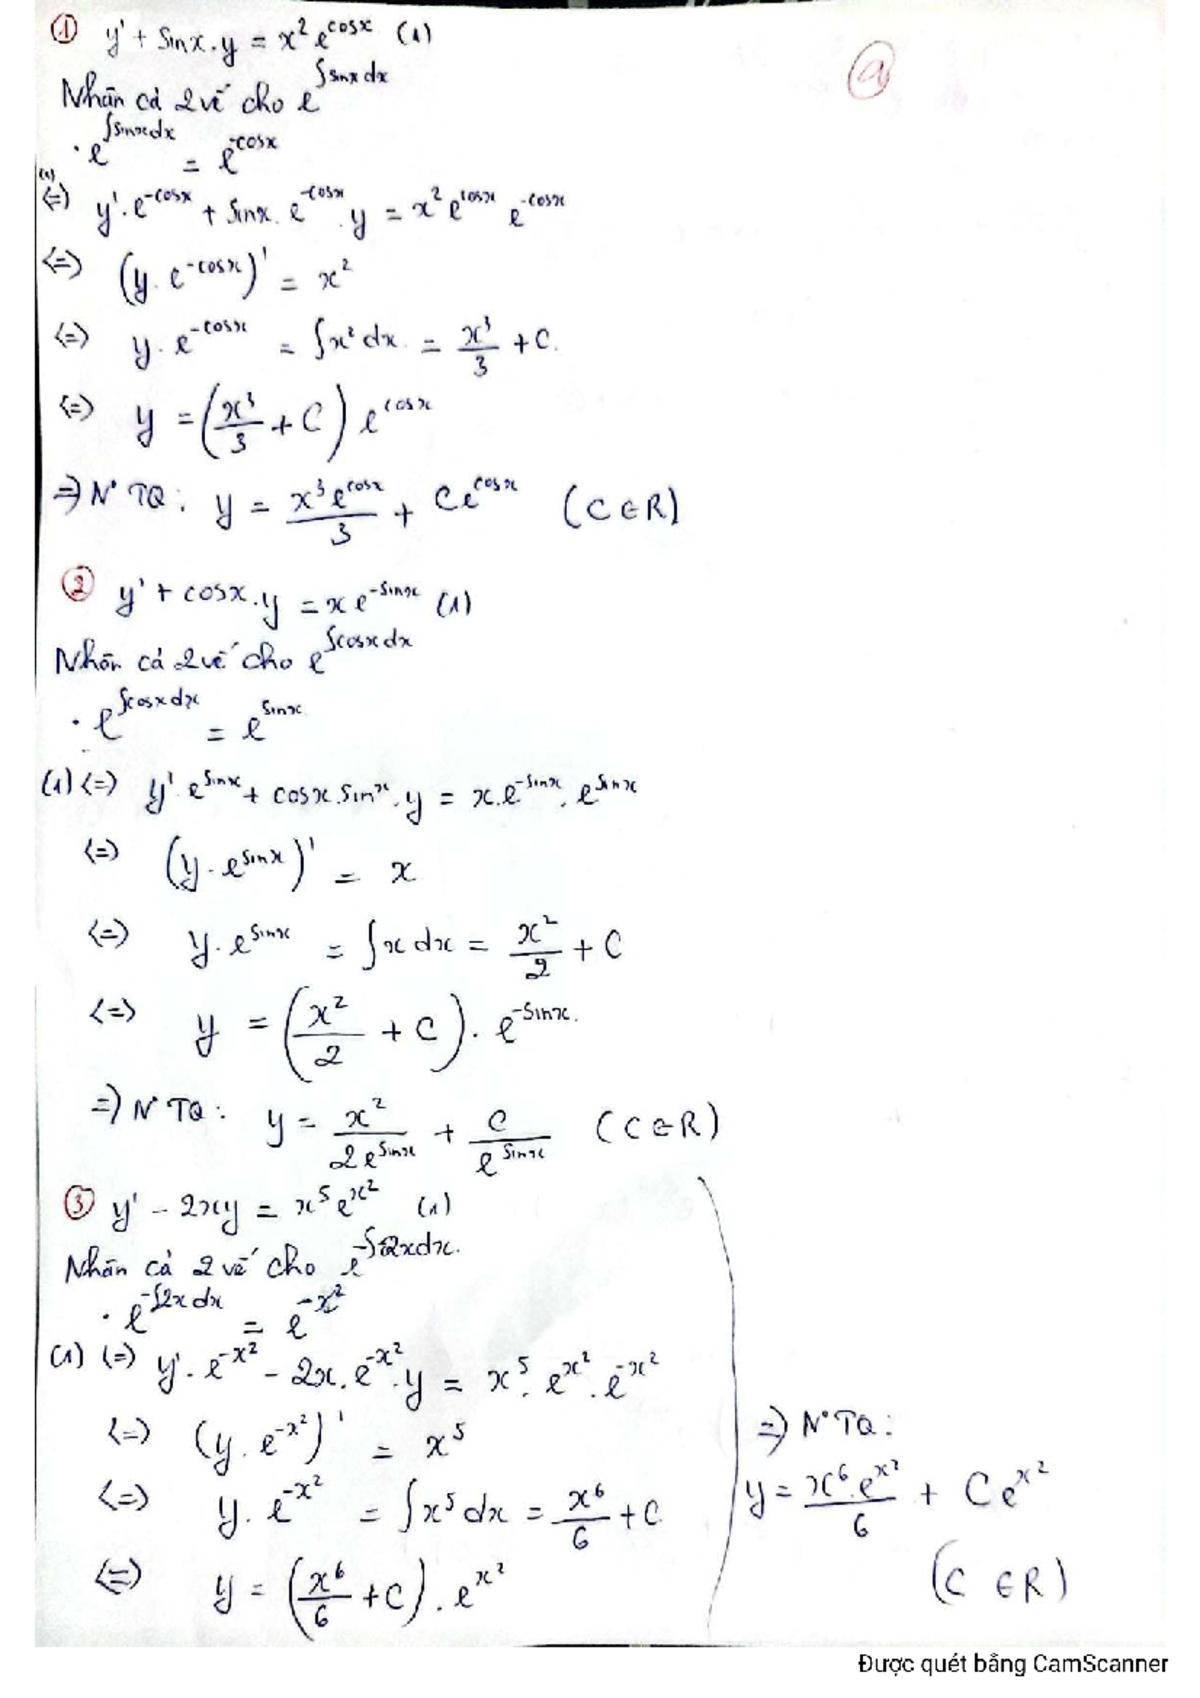 ① y' + sinx.y = x² e^cosx (1)
ⓐ
Nhân cả 2 vế cho e^∫sinx dx
. e^∫sinx dx = e^-cosx
(1) <=> y'.e^-cosx + sinx. e^-cosx .y = x² e^cosx e^-cosx
<=> (y. e^-cosx)' = x²
<=> y. e^-cosx = ∫x² dx = x³/3 + C.
<=> y = (x³/3 + C) e^cosx
=> N° TQ: y = x³e^cosx/3 + Ce^cosx (C ∈ R)
② y' + cosx.y = x e^-sinx (1)
Nhân cả 2 vế cho e^∫cosx dx
. e^∫cosx dx = e^sinx
(1) <=> y'.e^sinx + cosx.sin^x.y = x.e^-sinx . e^sinx
<=> (y. e^sinx)' = x
<=> y. e^sinx = ∫x dx = x²/2 + C
<=> y = (x²/2 + C). e^-sinx.
=> N° TQ: y = x²/2e^sinx + C/e^sinx (C ∈ R)
③ y' - 2xy = x⁵ e^x² (1)
Nhân cả 2 vế cho e^-∫2xdx.
. e^-∫2x dx = e^-x²
(1) <=> y'. e^-x² - 2x. e^-x² .y = x⁵. e^x² . e^-x²
<=> (y. e^-x²)' = x⁵
<=> y. e^-x² = ∫x⁵ dx = x⁶/6 + C
<=> y = (x⁶/6 + C). e^x²
=> N° TQ:
y = x⁶.e^x²/6 + C e^x²
(C ∈ R)
Được quét bằng CamScanner